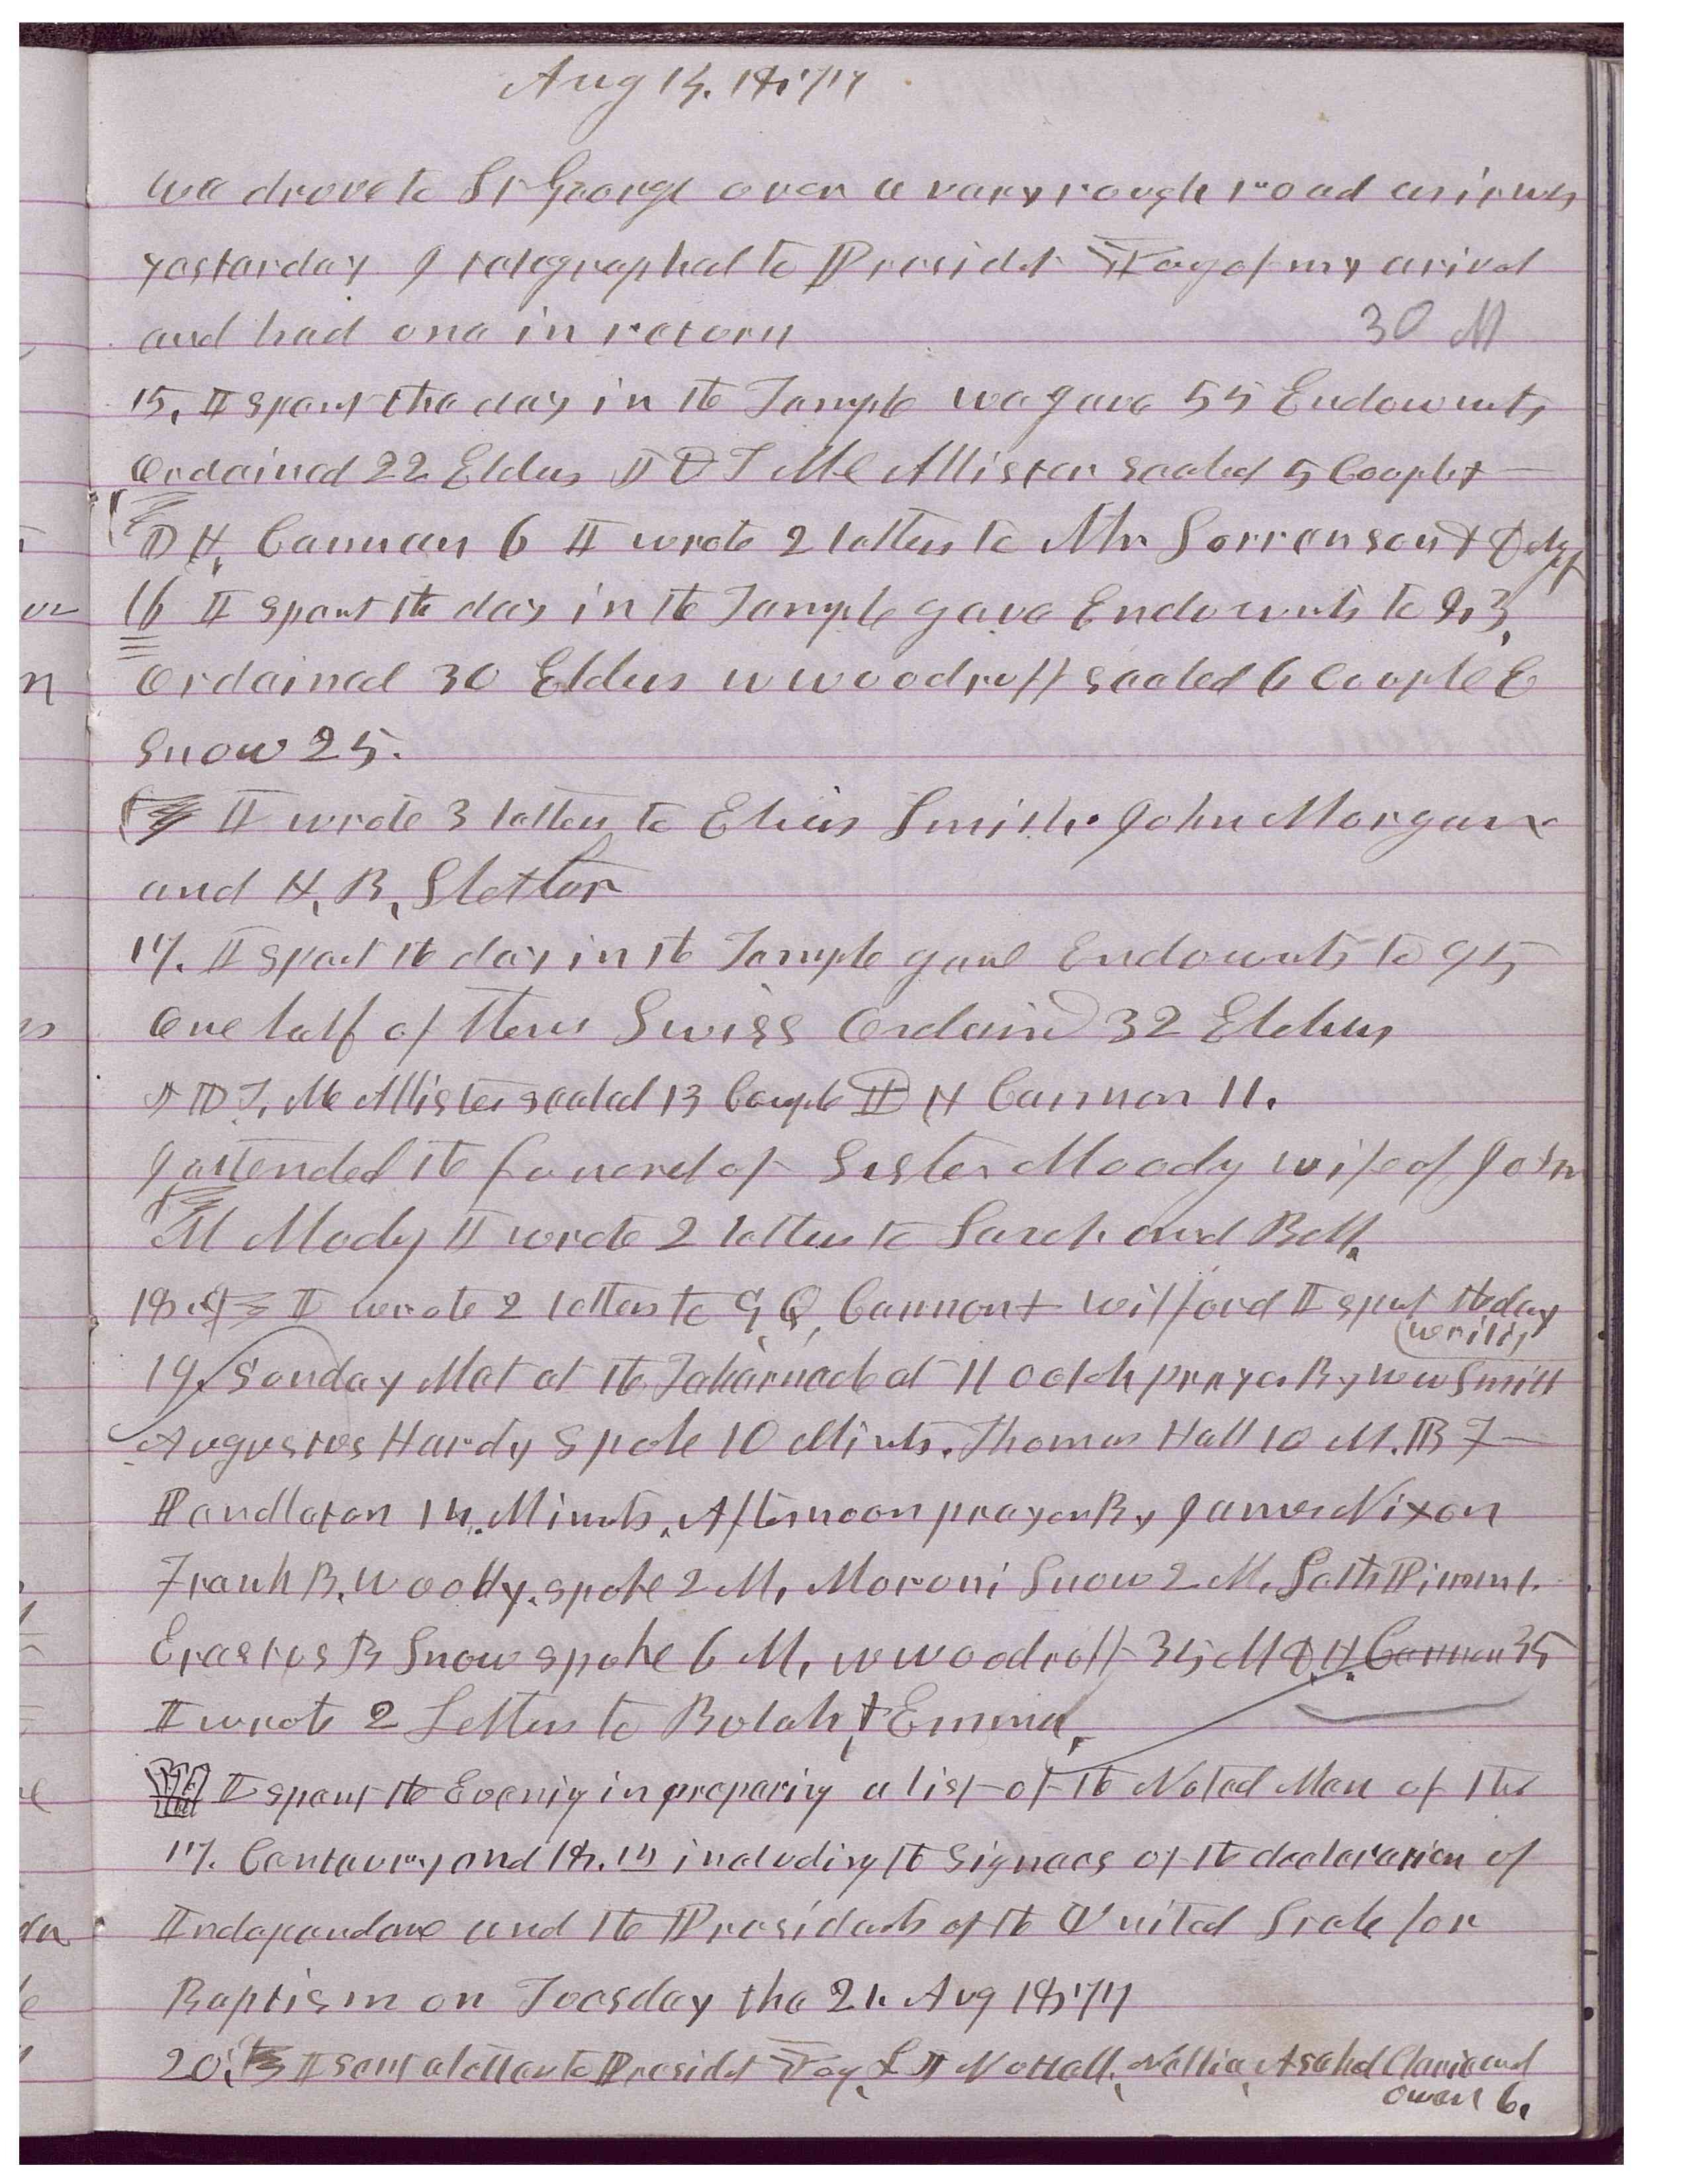 Aug 14. 1877
we drove to St George over a vary rough road as it was
yesterday I telegraphed to Presidet Young of my arival
and had one in return 30 M
15, I spent the day in the Temple we gave 55 Endowmts
Ordained 22 Elders J D T McAllister sealed 5 Couplet
D H, Cannan 6 I wrote 2 letters to Mr Sorrenson &
16 I spent the day in the Temple gave Endowmts to 93,
Ordained 30 Elders W Woodruff sealed 6 Couple E
Snow 25.
I wrote 3 letters to Elias Smith. John Morgan
and H, B, Sletter
17. I spent the day in the Temple gave Endowmts to 95
One half of them Swiss Ordaind 32 Elders
J D T, McAllister sealed 13 Couple D H Cannon 11.
I attended the funeral of Sister Moody wife of John
M Mody I wrote 2 letters to Sarah and Bell.
18. I wrote 2 letters to G, Q, Cannon & Wilford I spent the day
(writig
19. Sunday Met at the Tabernacle at 11 oclok prayer By Wm Smith
Augustus Hardy Spoke 10 Minuts. Thomas Hall 10 M. B F
Pendleton 14. Minuts, Afternoon prayer By James Nixon
Frank B. Woolly. spoke 2 M, Moroni Snow 2 M, Seth
Erastus B Snow spoke 6 M, W Woodruff 35 M D. H. Cannon 35
I wrote 2 Letters to Bulah, & Emma,
I spent the Evenig in preparig a list of the Noted Men of the
17. Centaury and 18.th includig the Signers of the declaration of
Independance and the Presidents of the United State for
Baptism on Tuesday the 21. Aug 1877
20. I sent a letter to Presidet Young, L J Nuttall, Nellie, Asahel Clara and
Owen 6.